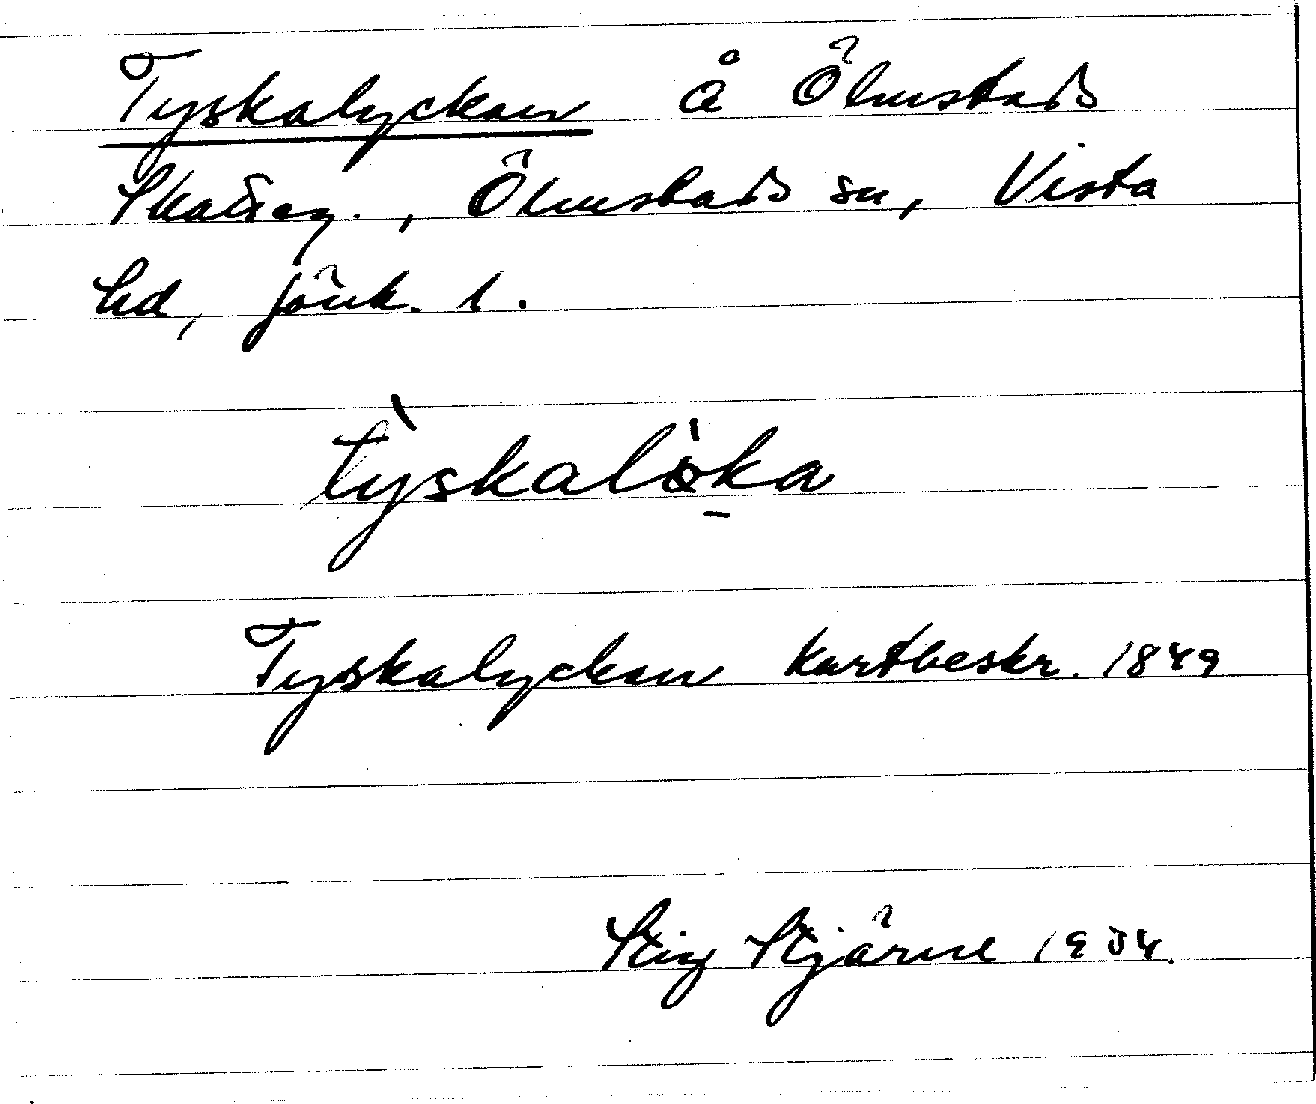 Tyskalyckan å Ölmstads
Skatteg., Ölmstads sn, Vista
hd, Jönk. l.
tỳskalòka
Tyskalyckan kartbeskr. 1849
Stig Stjärne 1934.